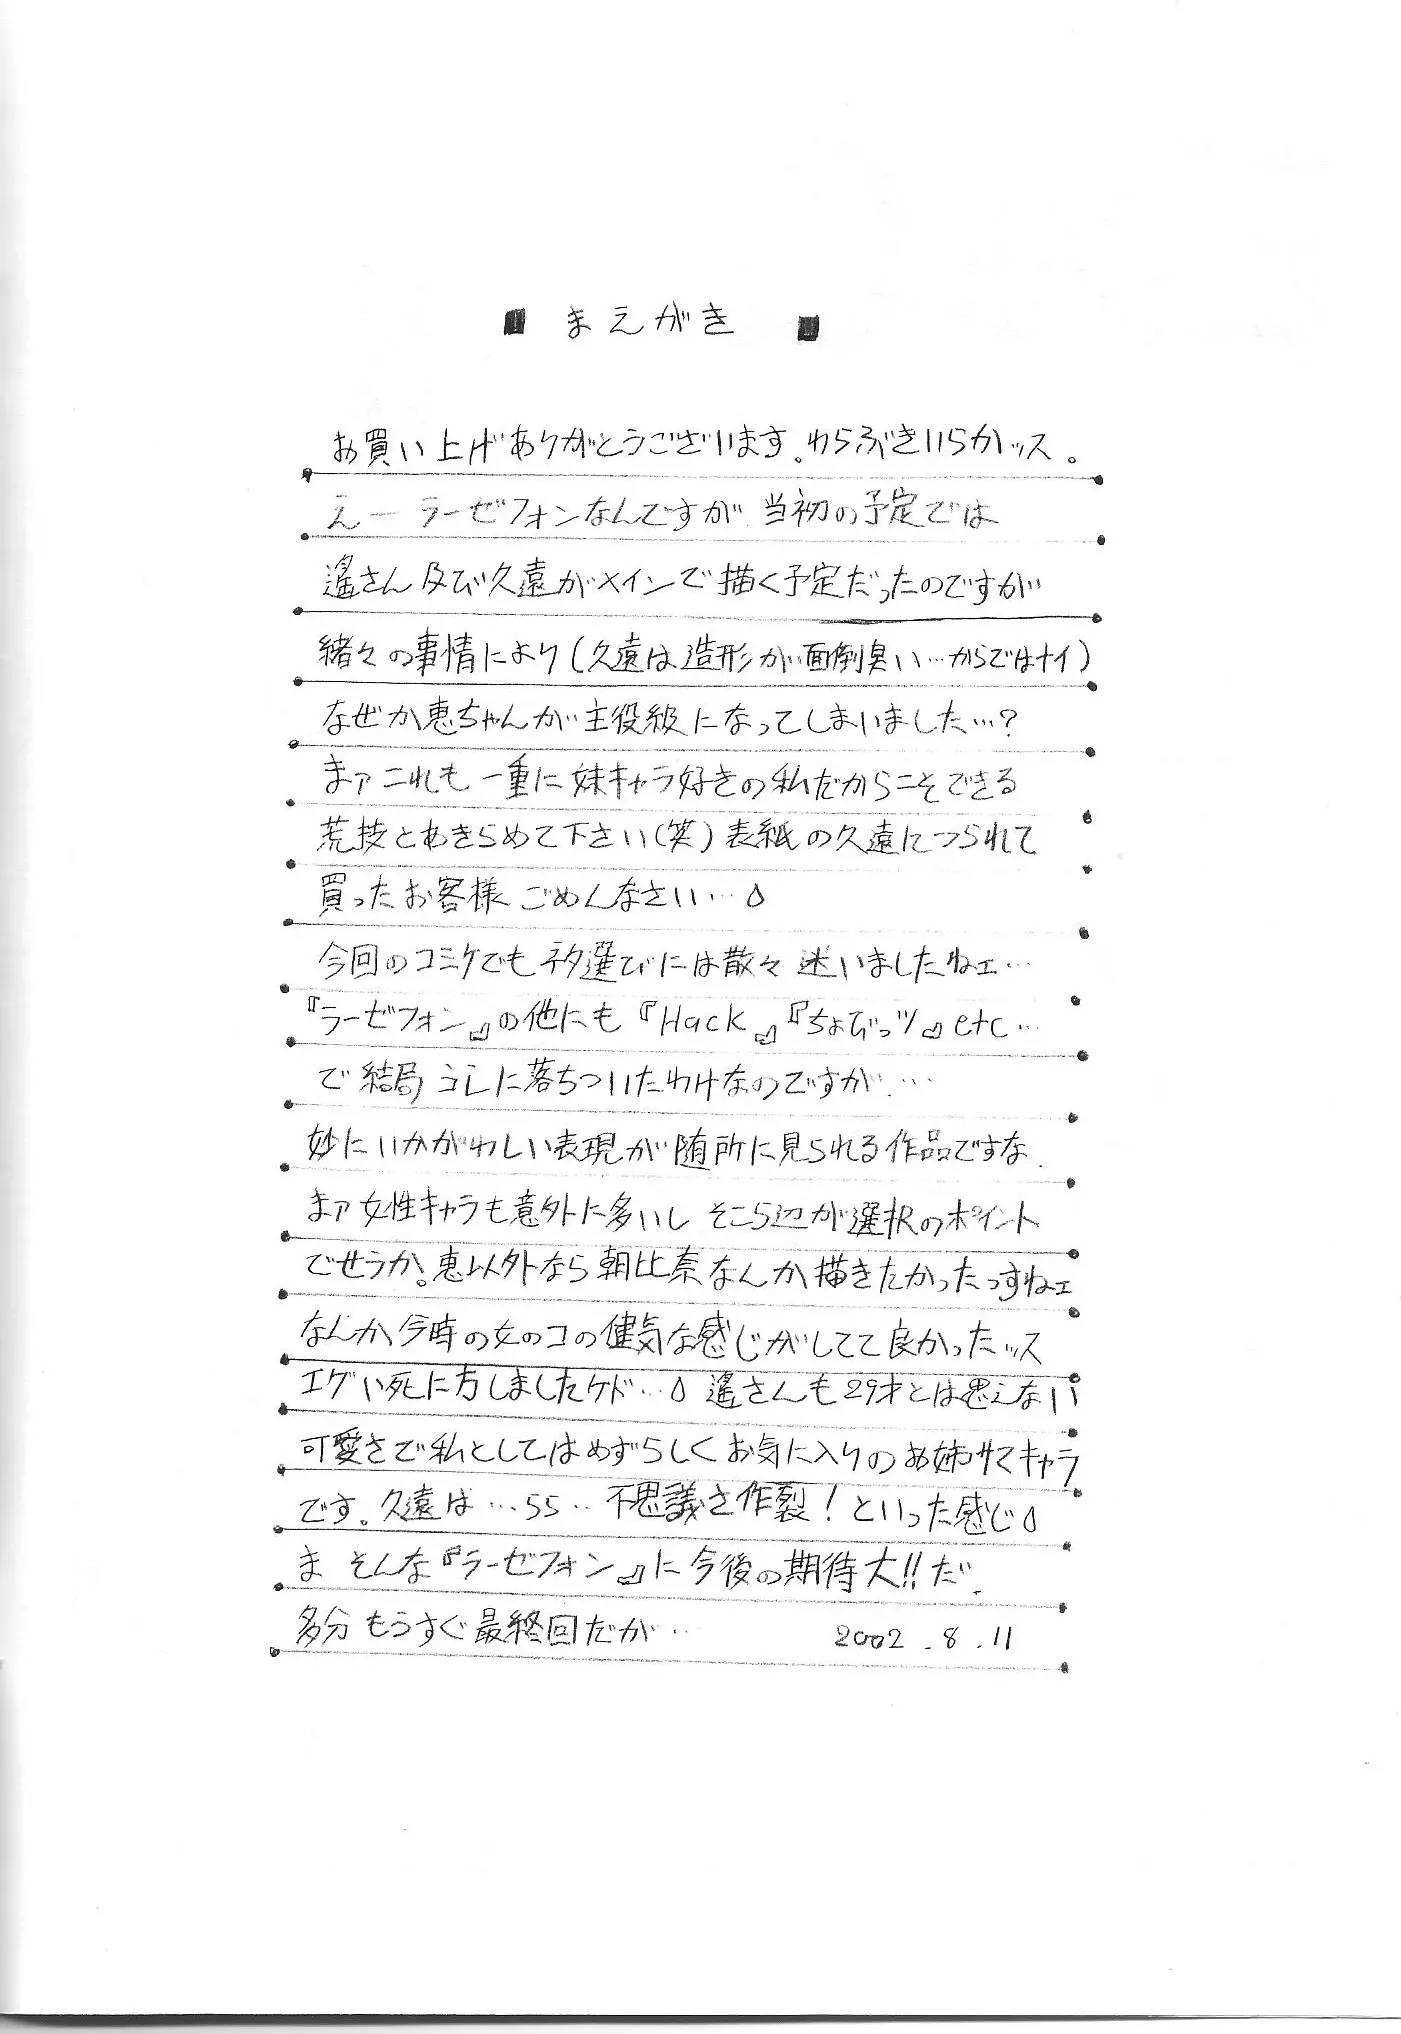 ■ まえがき ■
お買い上げありがとうございます。わらぶきいらかッス。
えー ラーゼフォンなんですが 当初の予定では
遙さん及び久遠がメインで描く予定だったのですが
緒々の事情により(久遠は造形が面倒臭い…からではナイ)
なぜか恵ちゃんが主役級になってしまいました…?
まァこれも一重に妹キャラ好きの私だからこそできる
荒技とあきらめて下さい(笑)表紙の久遠につられて
買ったお客様ごめんなさい…
今回のコミケでもネタ選びには散々迷いましたねェ…
『ラーゼフォン』の他にも『Hack』『ちょびっツ』etc…
で結局コレに落ちついたわけなのですが…
妙にいかがわしい表現が随所に見られる作品ですな.
まァ女性キャラも意外に多いし そこら辺が選択のポイント
でせうか。恵以外なら朝比奈なんか描きたかったっすねェ
なんか今時の女のコの健気な感じがしてて良かったッス
エグい死に方しましたケド… 遙さんも29才とは思えない
可愛さで私としてはめずらしくお気に入りのお姉サマキャラ
です。久遠は…ララ…不思議さ作裂!といった感じ
ま そんな『ラーゼフォン』に今後の期待大!!だ.
多分もうすぐ最終回だが…
2002.8.11